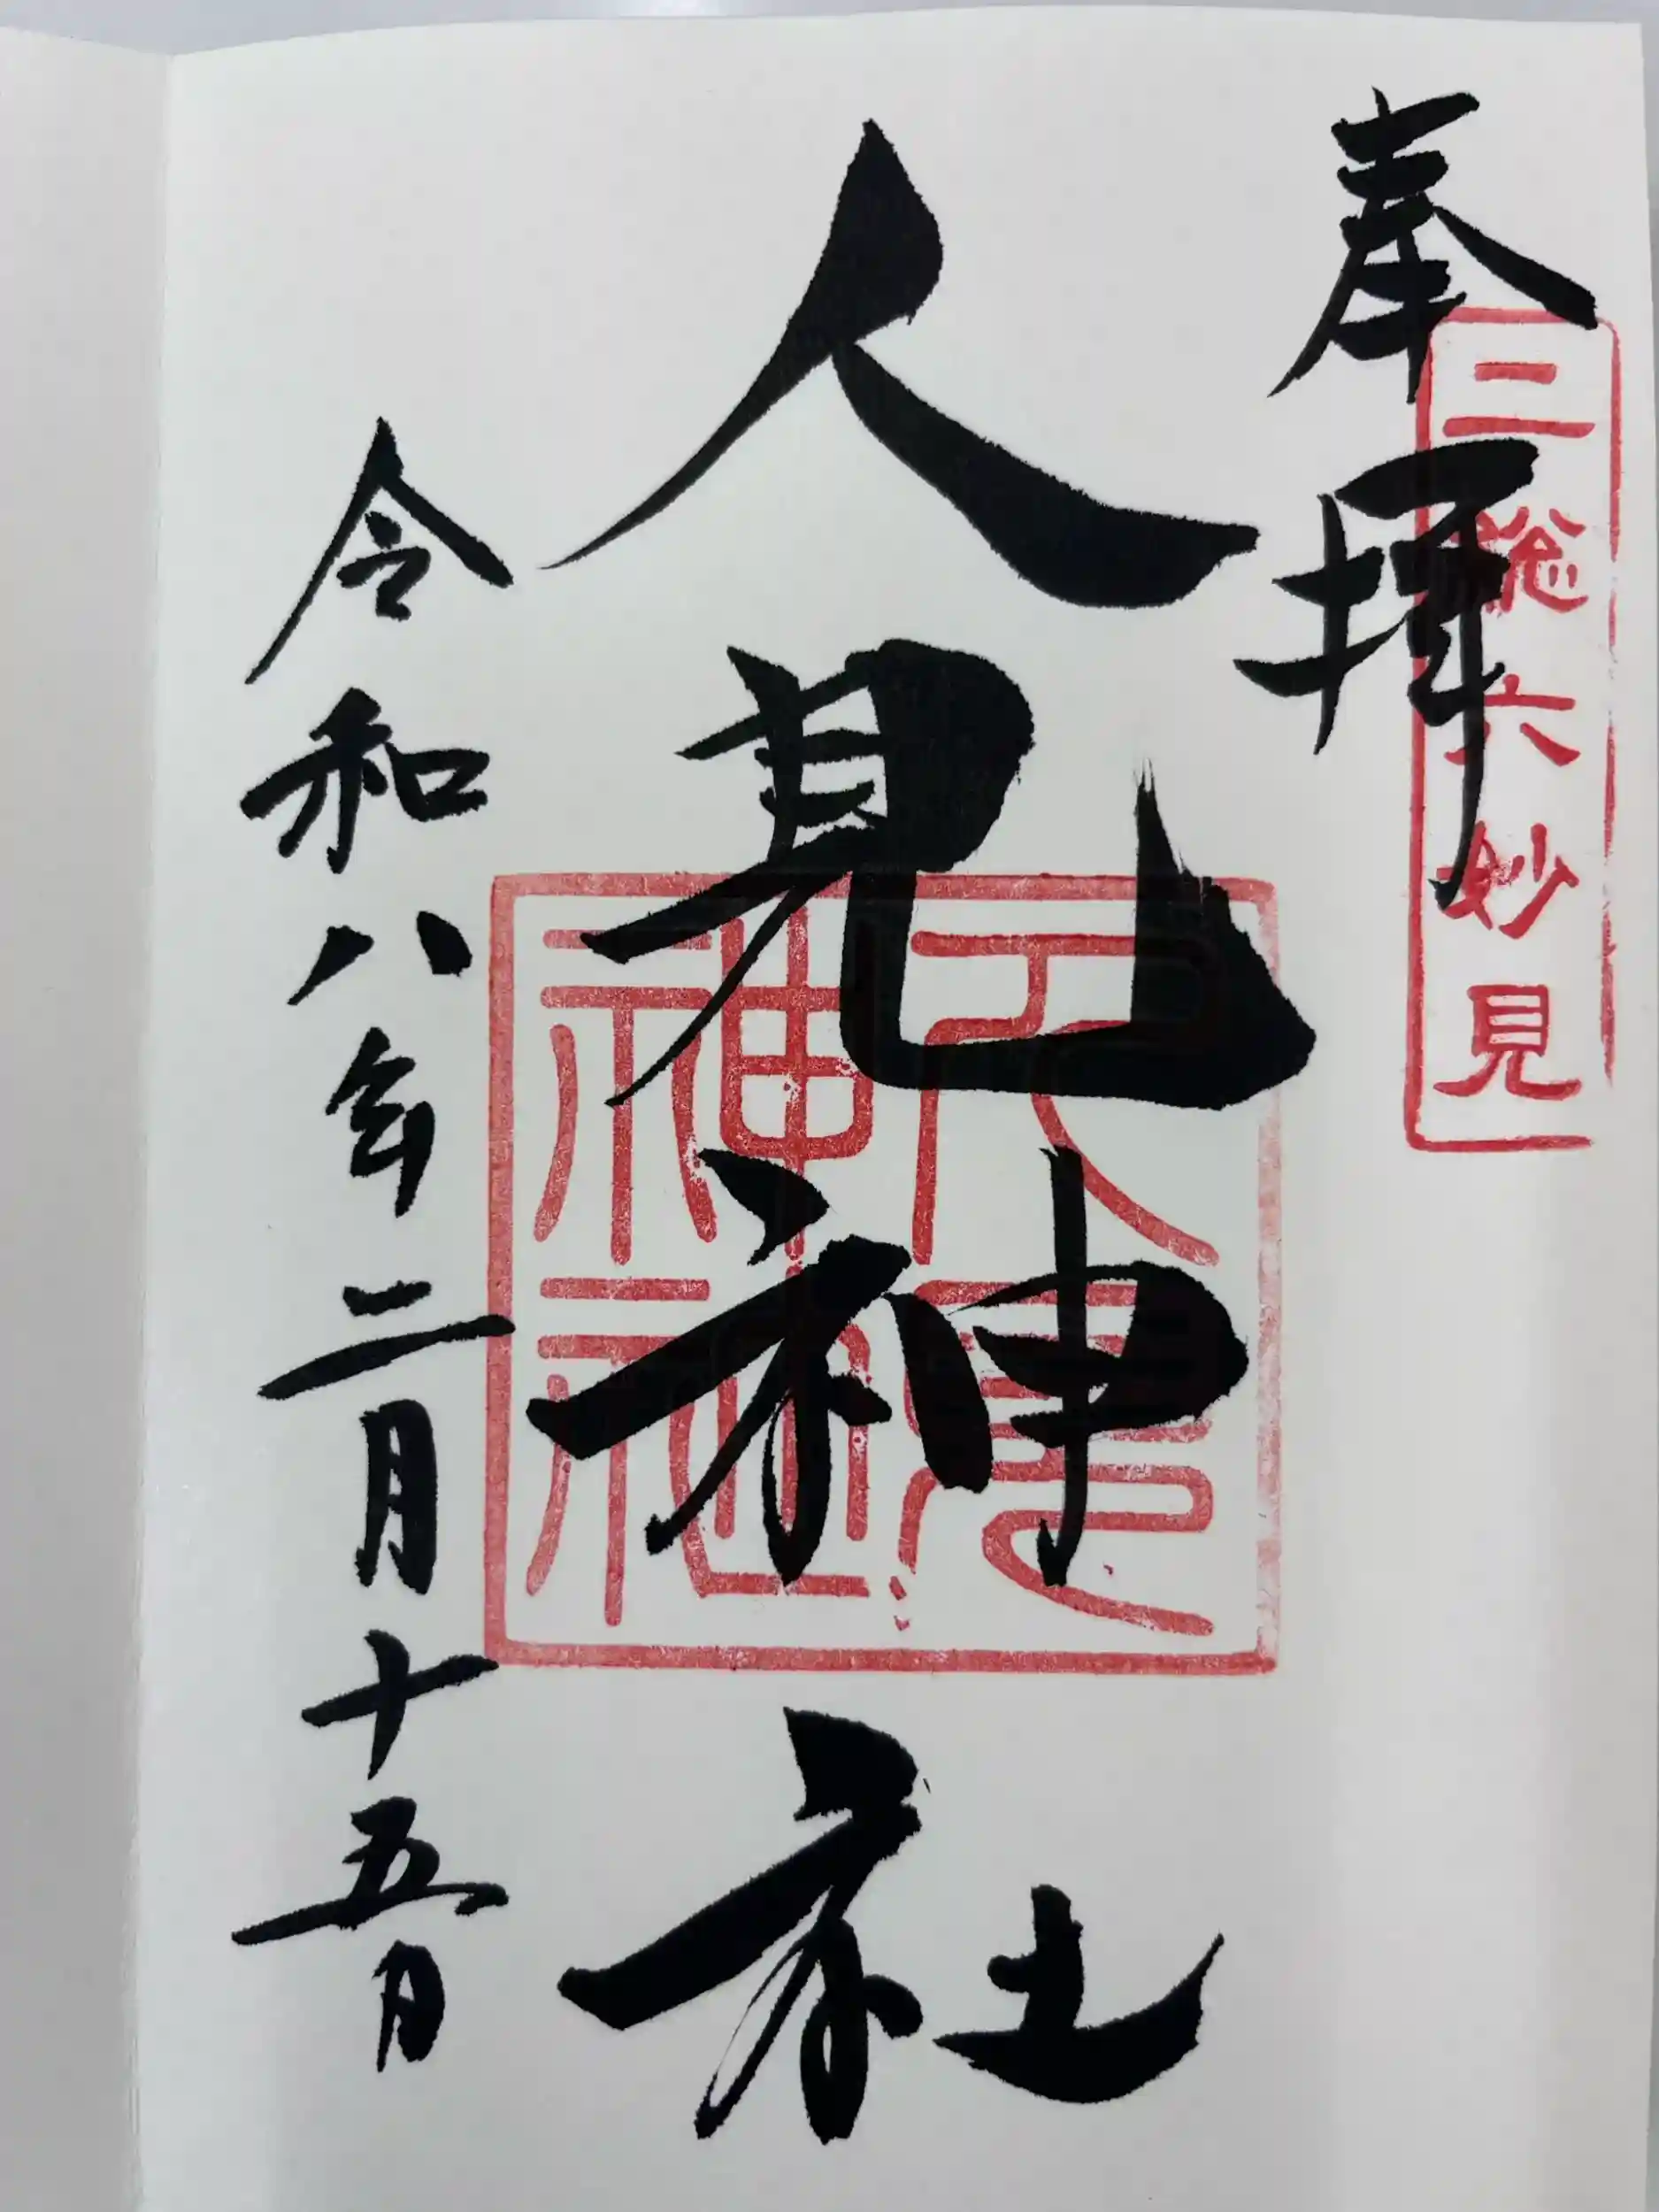 奉拝
二総六妙見
人見神社
神社
令和八年二月十五日